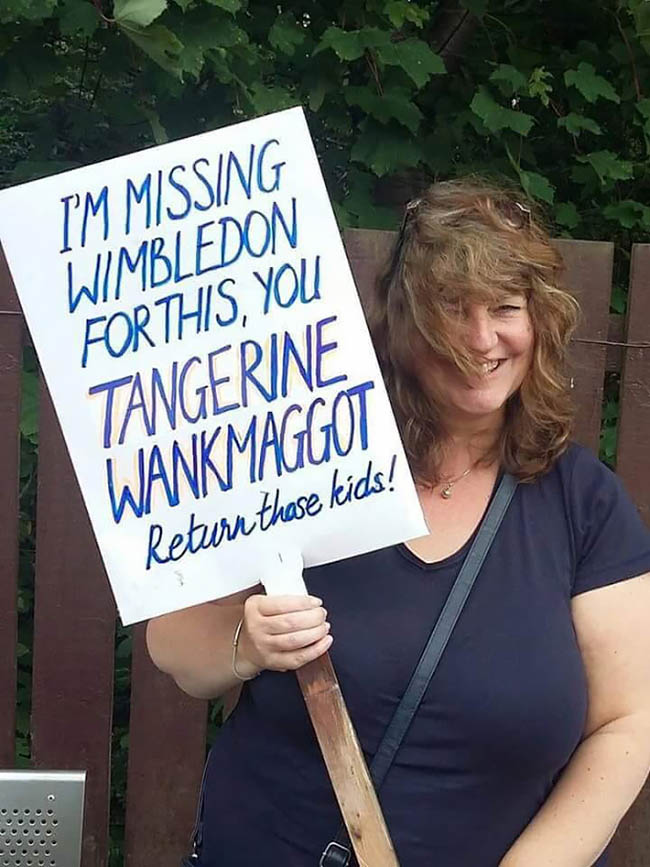 I'M MISSING
WIMBLEDON
FOR THIS, YOU
TANGERINE
WANKMAGGOT
Return those kids!